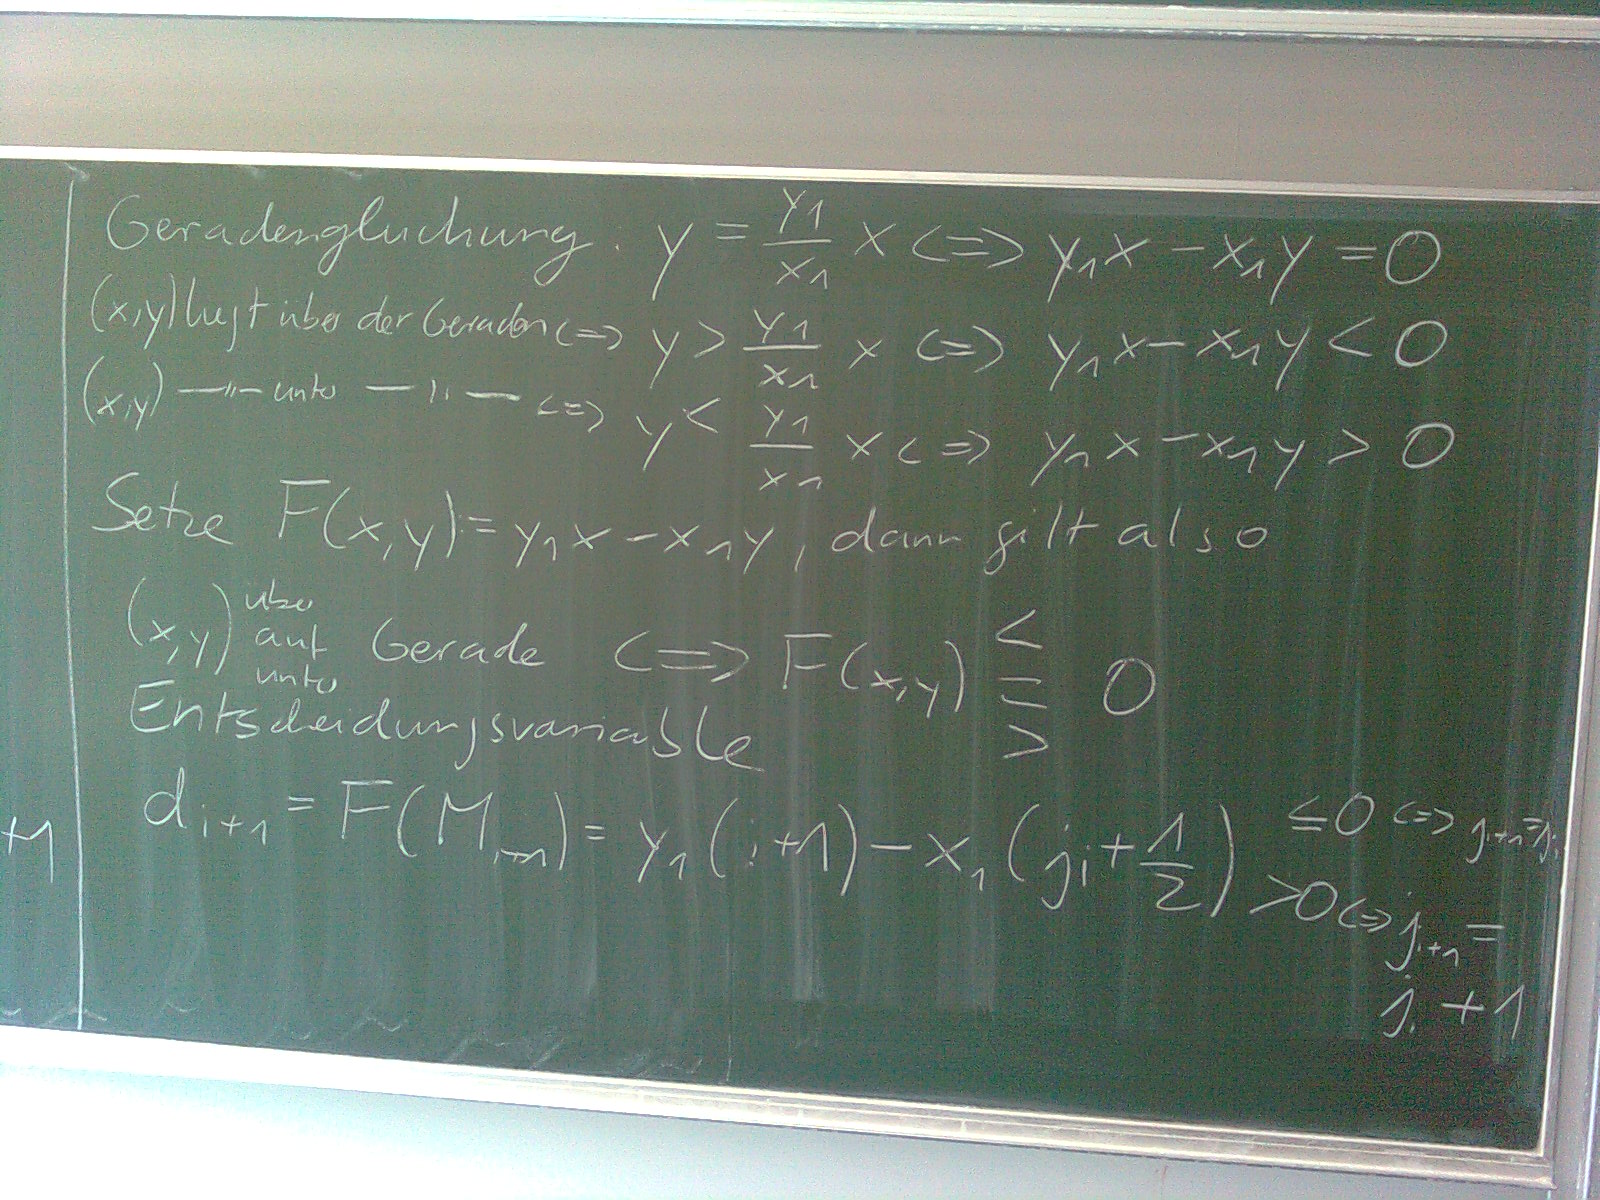 Geradengleichung: y = y₁/x₁ x <=> y₁x - x₁y = 0
(x,y) liegt über der Geraden <=> y > y₁/x₁ x <=> y₁x - x₁y < 0
(x,y) —"— unter —"— <=> y < y₁/x₁ x <=> y₁x - x₁y > 0
Setze F(x,y) := y₁x - x₁y, dann gilt also
über <
(x,y) auf Gerade <=> F(x,y) = 0
unter >
Entscheidungsvariable
dᵢ₊₁ = F(Mᵢ₊₁) = y₁(i+1) - x₁(jᵢ + 1/2) ≤0 <=> jᵢ₊₁=jᵢ
+1
>0 <=> jᵢ₊₁ =
jᵢ + 1